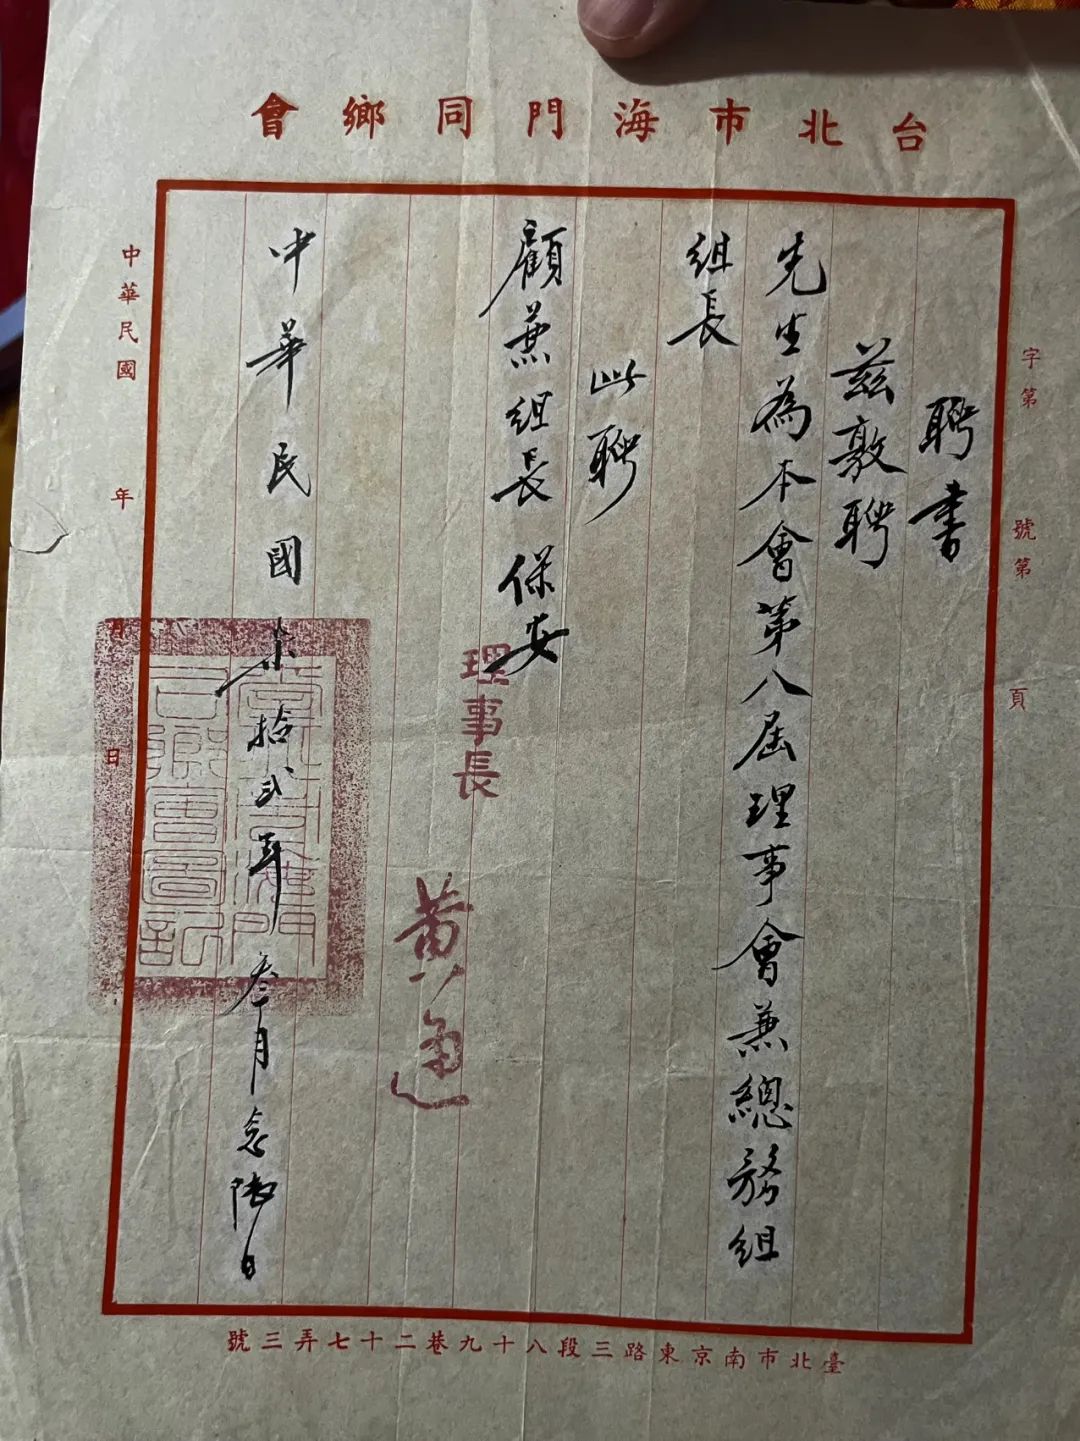 台北市海門同鄉會
字第 號第 頁
聘書
茲敦聘
先生為本會第八屆理事會兼總務組
組長
此聘
顧兼組長 保安
理事長 黃通
中華民國柒拾弍年叁月念陸日
臺北市海門
同鄉會圖記
中華民國 年 月 日
臺北市南京東路三段八十九巷二十七弄三號